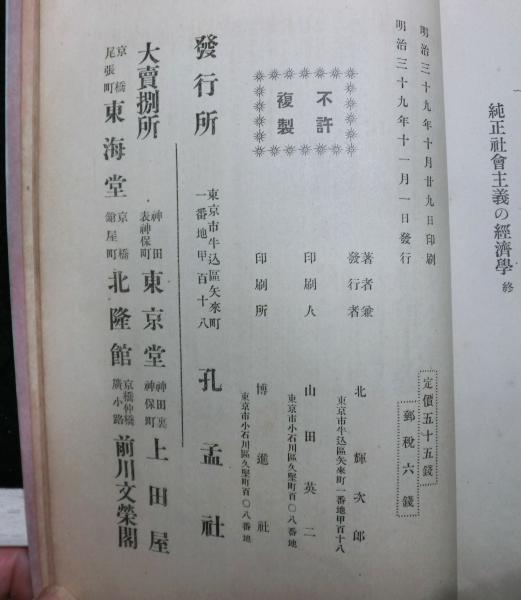 純正社會主義の經濟學 終
明治三十九年十月廿九日印刷
明治三十九年十一月一日發行
定價五十五錢
郵稅六錢
不許
複製
著者兼
發行者
北輝次郎
東京市牛込區矢來町一番地甲百十八
印刷人
山田英二
東京市小石川區久堅町百〇八番地
印刷所
博進社
東京市小石川區久堅町百〇八番地
發行所
東京市牛込區矢來町
一番地甲百十八
孔孟社
大賣捌所
神田
表神保町
東京堂
神田裏
神保町
上田屋
京橋
尾張町
東海堂
京橋
鎗屋町
北隆館
京橋仲橋
廣小路
前川文榮閣